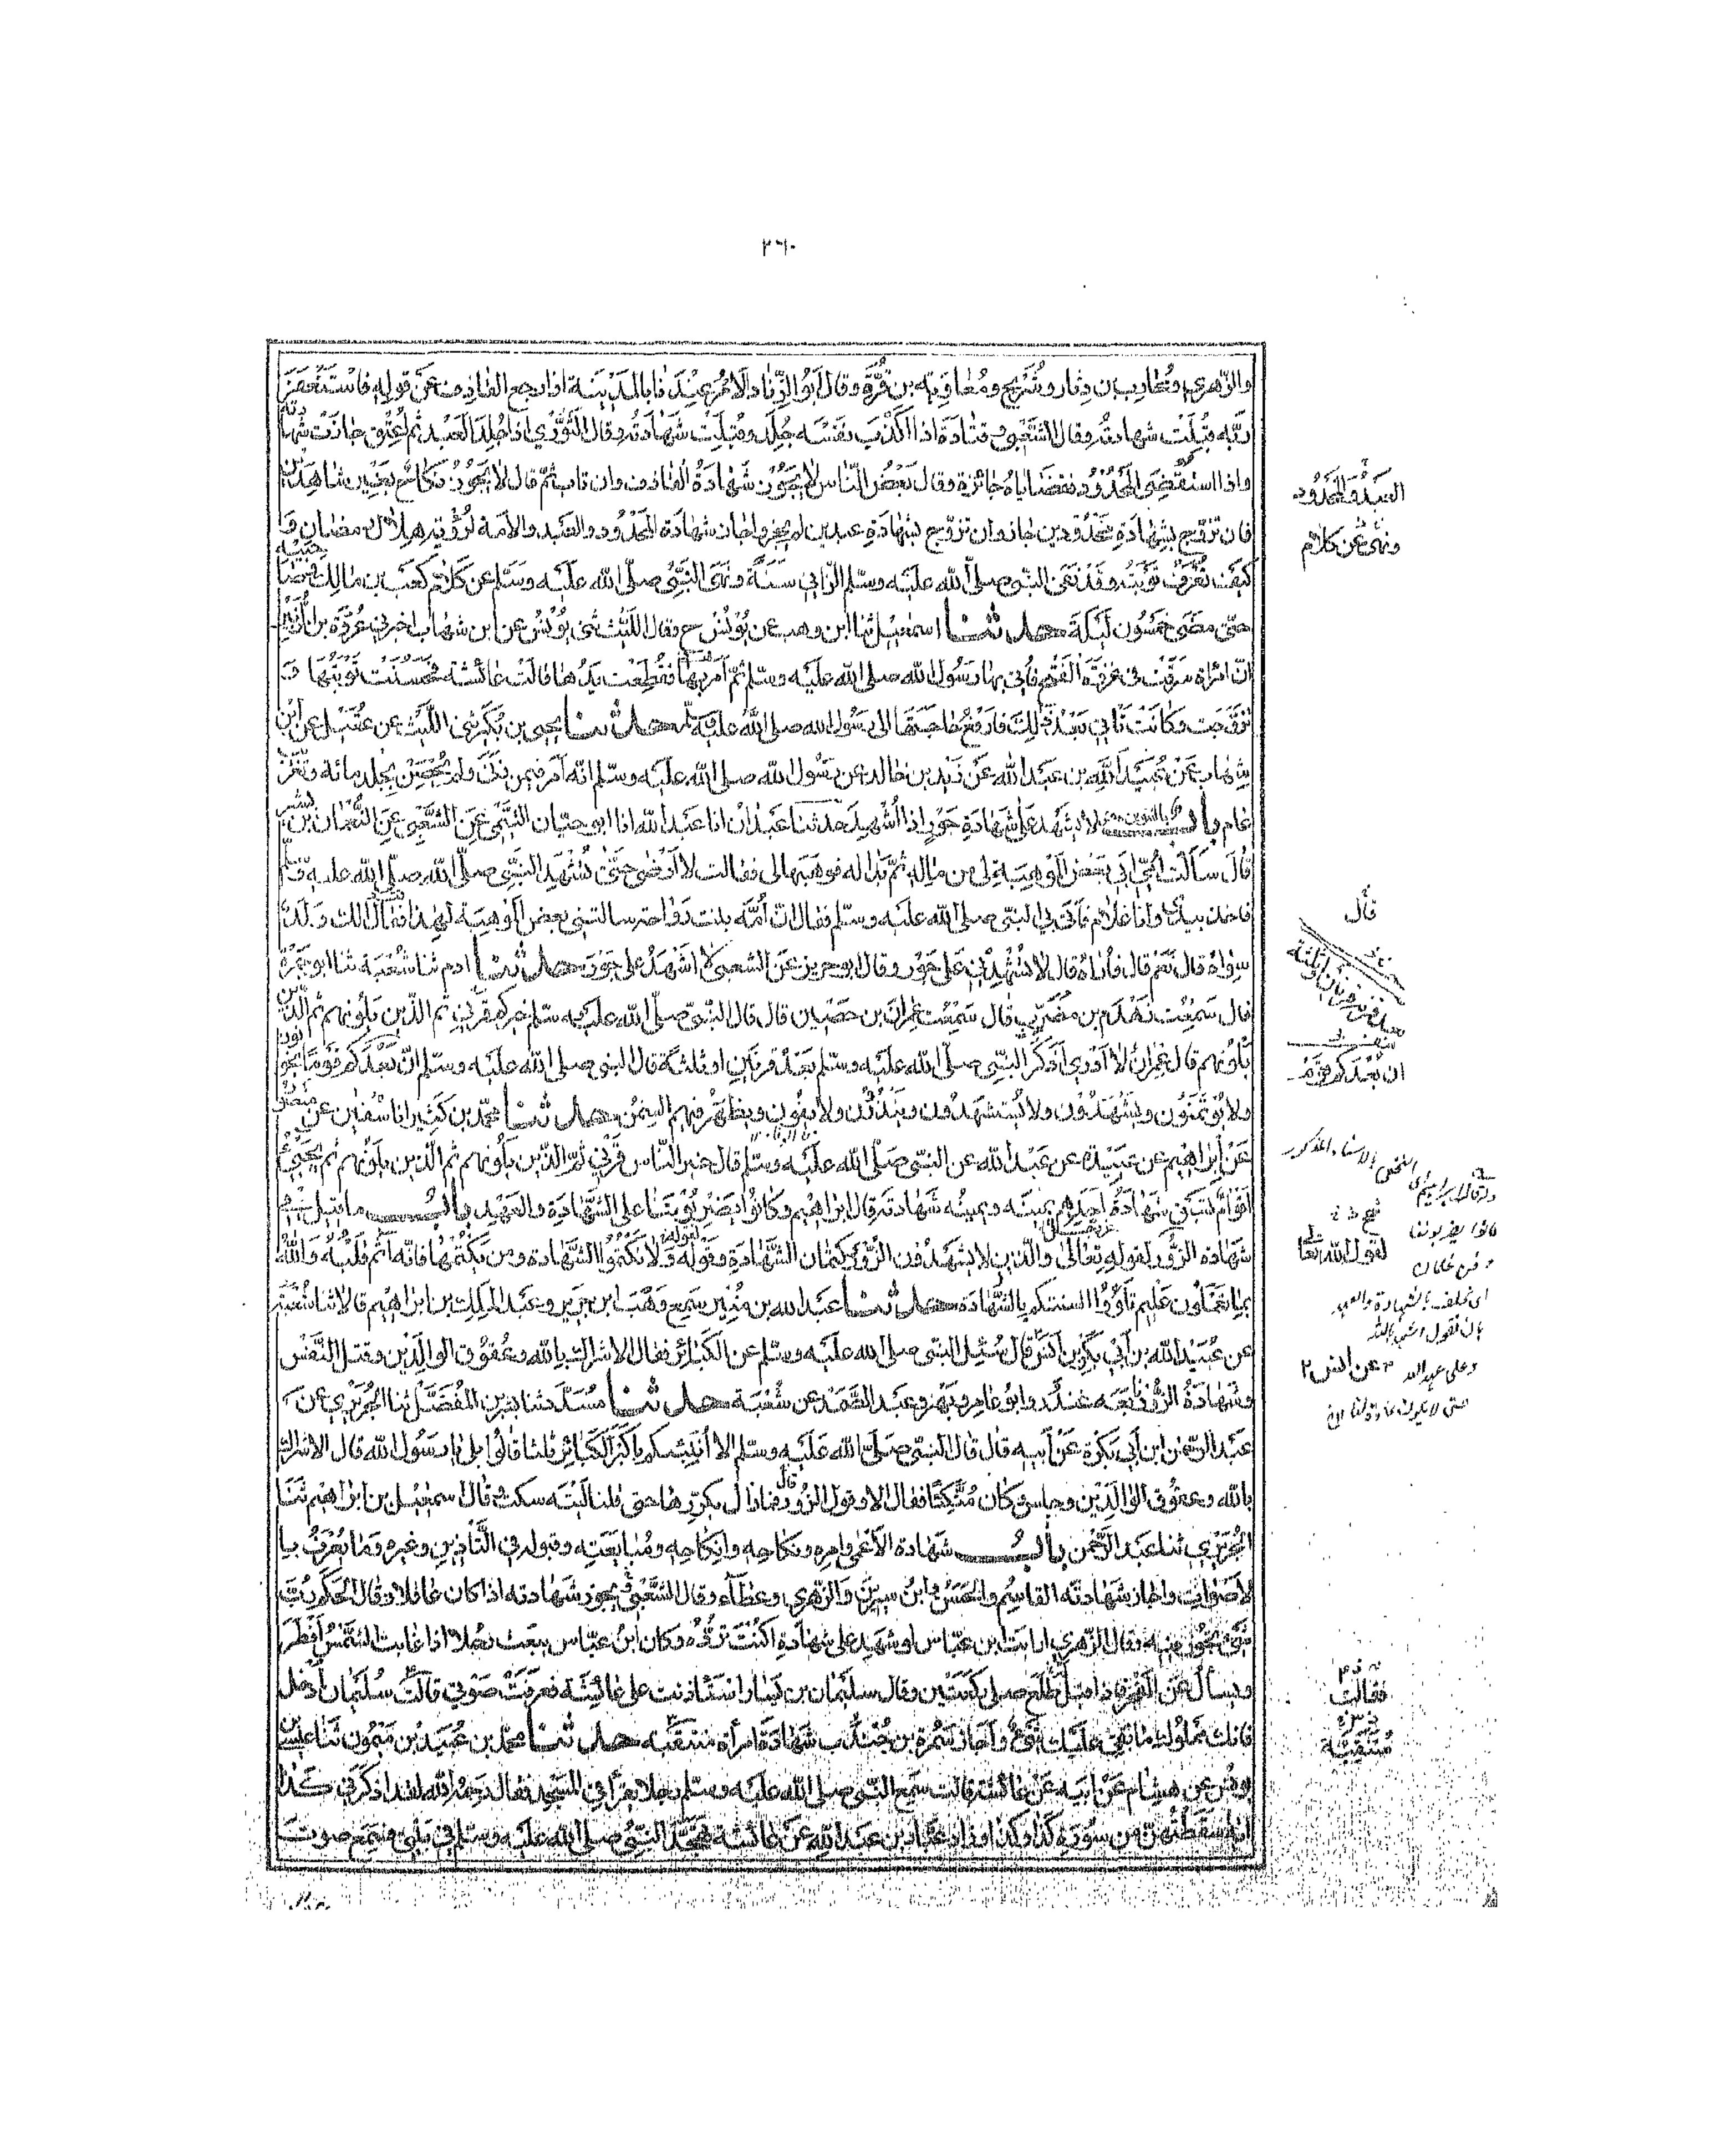 ٢٦٠
والزهري ومحارب بن دثار وشريح ومعاوية بن قرة وقال ابو الزناد الامر عندنا بالمدينة اذا رجع القاذف عن قوله فاستغفر
ربه قبلت شهادته وقال الشعبي وقتادة اذا اكذب نفسه جلد وقبلت شهادته وقال الثوري اذا جلد العبد ثم اعتق جازت شهادته
واذا استقضي المحدود فقضاياه جائزة وقال بعض الناس لا يجوز شهادة القاذف وان تاب ثم قال لا يجوز نكاح بغير شاهدين
فان تزوج بشهادة محدودين جاز وان تزوج بشهادة عبدين لم يجز واجاز شهادة المحدود والعبد والامة لرؤية هلال رمضان و
كيف تعرف توبته وقد نفى النبي صلى الله عليه وسلم الزاني سنة ونهى النبي صلى الله عليه وسلم عن كلام كعب بن مالك وصاحبيه
حتى مضى خمسون ليلة حدثنا اسمعيل ثنا ابن وهب عن يونس ح وقال الليث ثني يونس عن ابن شهاب اخبرني عروة بن الزبير
ان امراة سرقت في غزوة الفتح فأتي بها رسول الله صلى الله عليه وسلم ثم امر بها فقطعت يدها قالت عائشة فحسنت توبتها و
تزوجت وكانت تاتي بعد ذلك فارفع حاجتها الى رسول الله صلى الله عليه وسلم حدثنا يحيى بن بكير ثني الليث عن عقيل عن ابن
شهاب عن عبيد الله بن عبد الله عن زيد بن خالد عن رسول الله صلى الله عليه وسلم انه امر فيمن زنى ولم يحصن بجلد مائة وتغريب
عام باب لا يشهد على شهادة جور اذا أشهد حدثنا عبدان انا عبد الله انا ابو حيان التيمي عن الشعبي عن النعمان بن بشير
قال سألت امي ابي بعض الموهبة لي من ماله ثم بدا له فوهبها لي فقالت لا ارضى حتى تشهد النبي صلى الله عليه وسلم
فاخذ بيدي وانا غلام فأتى بي النبي صلى الله عليه وسلم فقال ان أمه بنت رواحة سالتني بعض الموهبة لهذا فقال الك ولد
سواه قال نعم قال فأراه قال لا تشهدني على جور وقال ابو حريز عن الشعبي لا اشهد على جور حدثنا ادم ثنا شعبة ثنا ابو جمرة
قال سمعت زهدم بن مضرب قال سمعت عمران بن حصين قال قال النبي صلى الله عليه وسلم خيركم قرني ثم الذين يلونهم ثم الذين
يلونهم قال عمران لا أدري اذكر النبي صلى الله عليه وسلم بعد قرنين او ثلثة قال النبي صلى الله عليه وسلم ان بعدكم قوما يخونون
ولا يؤتمنون ويشهدون ولا يستشهدون وينذرون ولا يفون ويظهر فيهم السمن حدثنا محمد بن كثير انا سفين عن منصور
عن ابراهيم عن عبيدة عن عبد الله عن النبي صلى الله عليه وسلم قال خير الناس قرني ثم الذين يلونهم ثم الذين يلونهم ثم يجيء
اقوام تسبق شهادة احدهم يمينه ويمينه شهادته قال ابراهيم وكانوا يضربوننا على الشهادة والعهد باب ما قيل في
شهادة الزور لقوله تعالى والذين لا يشهدون الزور وكتمان الشهادة وقوله ولا تكتموا الشهادة ومن يكتمها فانه آثم قلبه والله
بما تعملون عليم تلووا السنتكم بالشهادة حدثنا عبد الله بن منير سمع وهب ابن جرير وعبد الملك بن ابراهيم قالا ثنا شعبة
عن عبيد الله بن أبي بكر بن انس قال سئل النبي صلى الله عليه وسلم عن الكبائر فقال الاشراك بالله وعقوق الوالدين وقتل النفس
وشهادة الزور تابعه غندر وابو عامر وبهز وعبد الصمد عن شعبة حدثنا مسدد ثنا بشر بن المفضل ثنا الجريري عن
عبد الرحمن ابن أبي بكرة عن أبيه قال قال النبي صلى الله عليه وسلم الا أنبئكم باكبر الكبائر ثلثا قالوا بلى يا رسول الله قال الاشراك
بالله وعقوق الوالدين وجلس وكان متكئا فقال الا وقول الزور قال فما زال يكررها حتى قلنا ليته سكت وقال اسمعيل بن ابراهيم ثنا
الجريري ثنا عبد الرحمن باب شهادة الاعمى وامره ونكاحه وانكاحه ومبايعته وقبوله في التأذين وغيره وما يعرف با
لاصوات واجاز شهادته القاسم والحسن وابن سيرين والزهري وعطاء وقال الشعبي يجوز شهادته اذا كان عاقلا وقال الحكم رب
شيء تجوز فيه وقال الزهري ارايت ابن عباس لو شهد على شهادة اكنت ترده وكان ابن عباس يبعث رجلا اذا غابت الشمس أفطر
ويسأل عن الفجر فاذا قيل طلع صلى ركعتين وقال سليمان بن يسار استأذنت على عائشة فعرفت صوتي قالت سليمان ادخل
فانك مملوك ما بقي عليك شيء وأجاز سمرة بن جندب شهادة امرأة منتقبة حدثنا محمد بن عبيد بن ميمون ثنا عيسى بن
يونس عن هشام عن ابيه عن عائشة قالت سمع النبي صلى الله عليه وسلم رجلا يقرأ في المسجد فقال رحمه الله لقد اذكرني كذا
اية اسقطتهن من سورة كذا وكذا وزاد عباد بن عبد الله عن عائشة تهجد النبي صلى الله عليه وسلم في بيتي فسمع صوت
ونهى عن كلام
قال
ان بعدكم قوم
لقول الله تعالى
فقالت
متنقبة